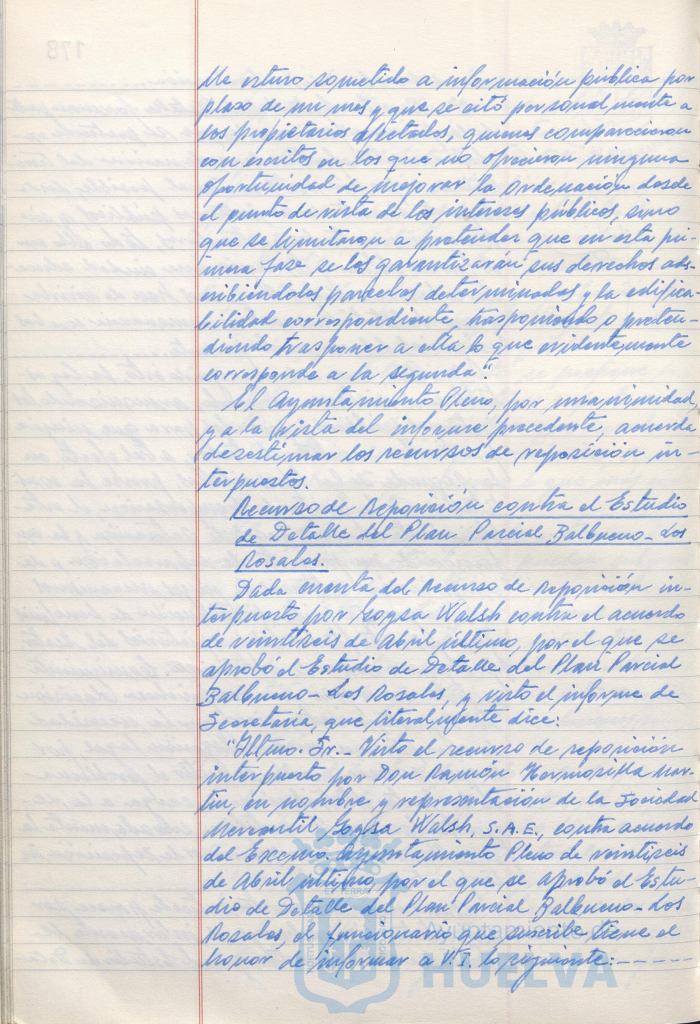 lle estuvo sometido a información pública por
plazo de un mes y que se citó personalmente a
los propietarios afectados, quienes comparecieron
con escritos en los que no ofrecieron ninguna
oportunidad de mejorar la ordenación desde
el punto de vista de los intereses públicos, sino
que se limitaron a pretender que en esta pri-
mera fase se les garantizarán sus derechos ads-
cribiéndoles parcelas determinadas y la edifica-
bilidad correspondiente, trasponiendo o preten-
diendo trasponer a ella lo que evidentemente
corresponde a la segunda".
El Ayuntamiento Pleno, por unanimidad,
y a la vista del informe precedente, acuerda
desestimar los recursos de reposición in-
terpuestos.
Recurso de Reposición contra el Estudio
de Detalle del Plan Parcial Balbueno-Los
Rosales.
Dada cuenta del Recurso de Reposición in-
terpuesto por Soysa Walsh contra el acuerdo
de veintiseis de Abril último, por el que se
aprobó el Estudio de Detalle del Plan Parcial
Balbueno-Los Rosales, y visto el informe de
Secretaría, que literalmente dice:
"Iltmo. Sr.- Visto el recurso de reposición
interpuesto por Don Ramón Hermosilla Mar-
tín, en nombre y representación de la Sociedad
Mercantil Soysa Walsh, S.A.E., contra acuerdo
del Excmo. Ayuntamiento Pleno de veintiseis
de Abril último, por el que se aprobó el Estu-
dio de Detalle del Plan Parcial Balbueno-Los
Rosales, el funcionario que suscribe tiene el
honor de informar a V.I. lo siguiente:-----
178
HUELVA